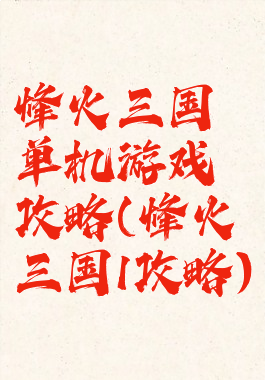 烽火三国
单机游戏
攻略(烽火
三国1攻略)